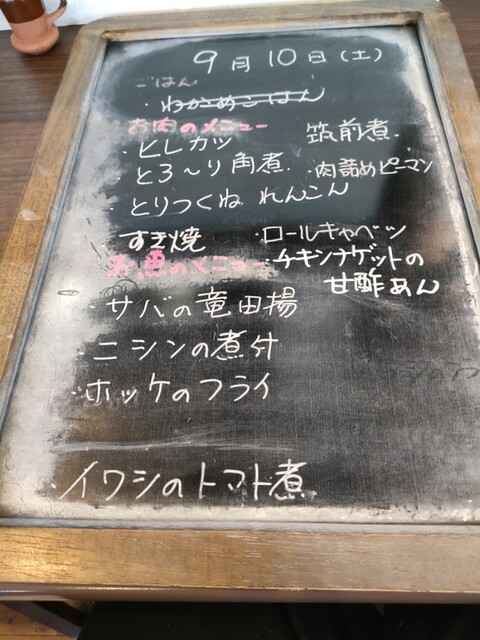 9月10日(土)
ごはん
・わかめごはん
お肉のメニュー
・ヒレカツ
筑前煮
・とろ〜り角煮
・肉詰めピーマン
・とりつくね れんこん
・すき焼
・ロールキャベツ
お魚のメニュー
・チキンナゲットの
甘酢あん
・サバの竜田揚
・ニシンの煮付
・ホッケのフライ
・イワシのトマト煮